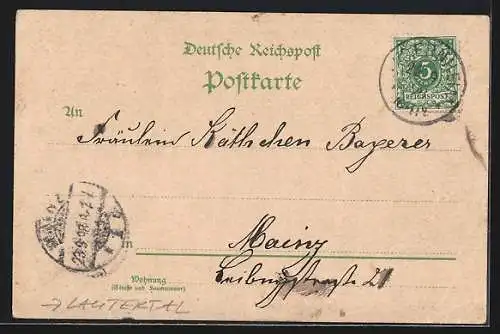 Deutsche Reichspost
Postkarte
5
REICHSPOST
An
Fräulein Käthchen Bayerer
in
Mainz
Leibnizstrasse 21
Wohnung
(Straße und Hausnummer)
→ LAUTERTAL